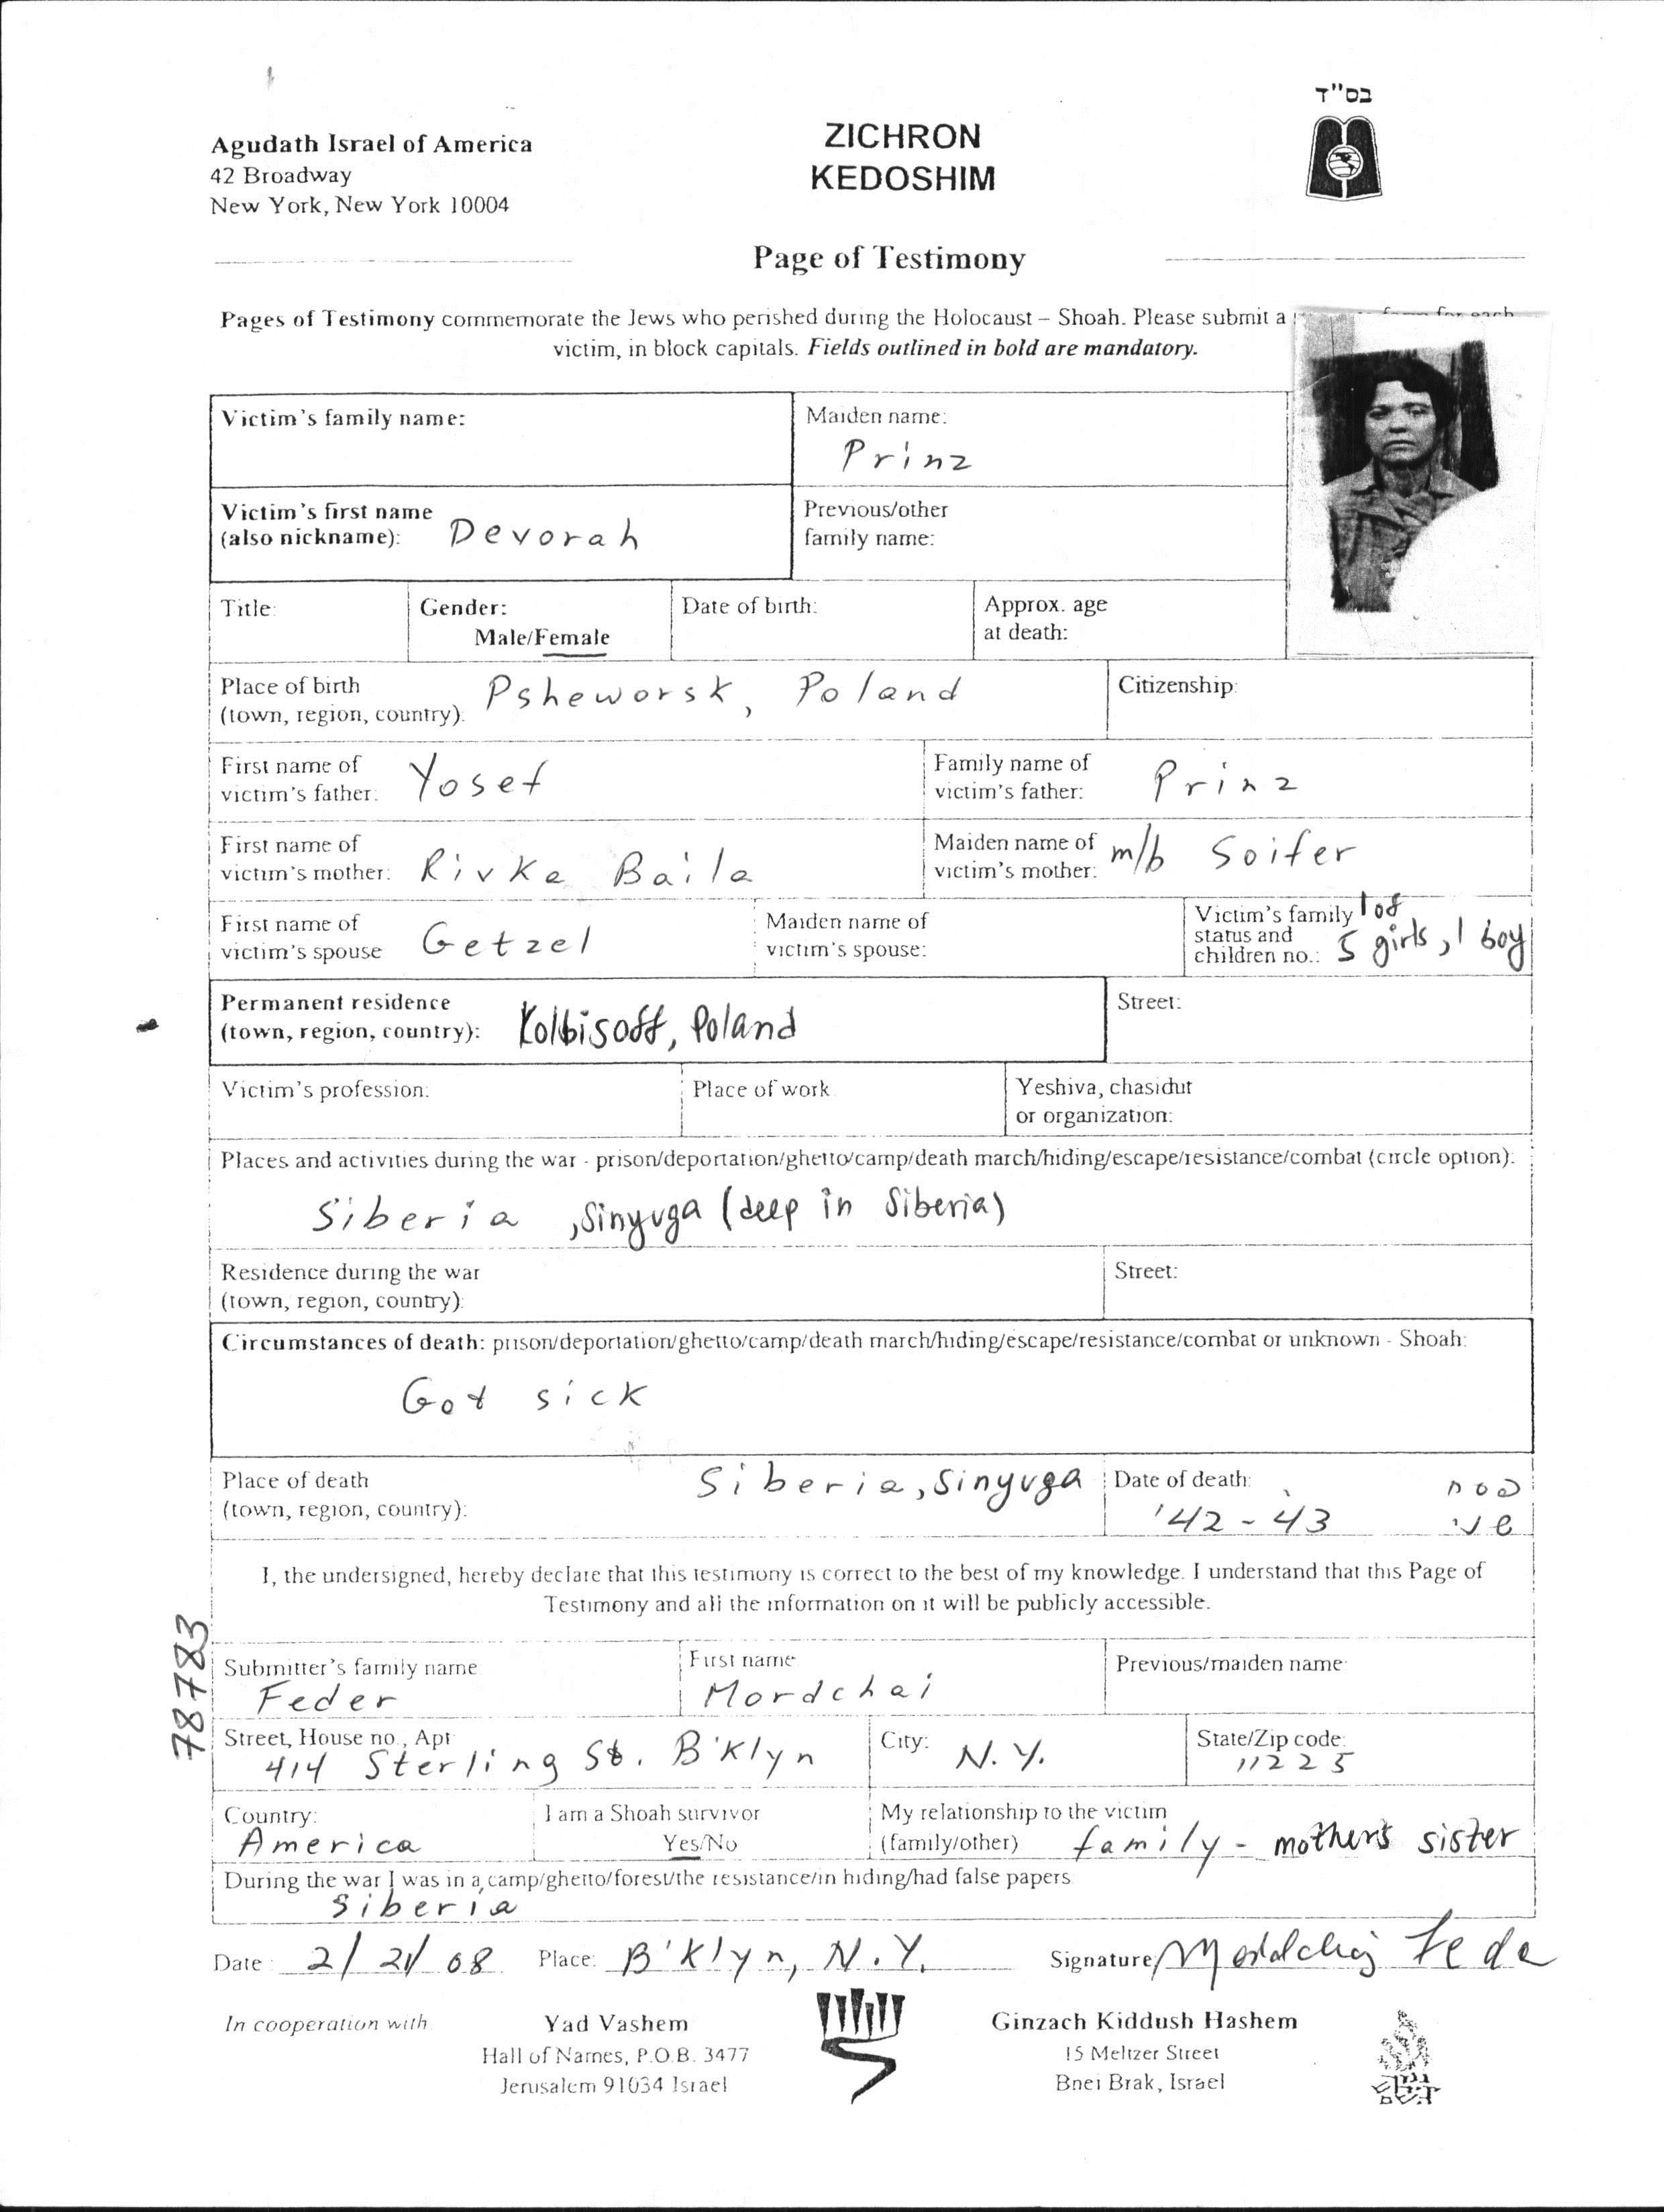 בס"ד
Agudath Israel of America
42 Broadway
New York, New York 10004
ZICHRON
KEDOSHIM
Page of Testimony
Pages of Testimony commemorate the Jews who perished during the Holocaust – Shoah. Please submit a
victim, in block capitals. Fields outlined in bold are mandatory.
Victim's family name:
Maiden name:
Prinz
Victim's first name
(also nickname): Devorah
Previous/other
family name:
Title:
Gender:
Male/Female
Date of birth:
Approx. age
at death:
Place of birth
(town, region, country): Psheworsk, Poland
Citizenship:
First name of
victim's father: Yosef
Family name of
victim's father: Prinz
First name of
victim's mother: Rivka Baila
Maiden name of
victim's mother: m/b Soifer
First name of
victim's spouse Getzel
Maiden name of
victim's spouse:
Victim's family
status and
children no.: 5 girls, 1 boy
Permanent residence
(town, region, country): Kolbisoff, Poland
Street:
Victim's profession:
Place of work
Yeshiva, chasidut
or organization:
Places and activities during the war - prison/deportation/ghetto/camp/death march/hiding/escape/resistance/combat (circle option):
Siberia, Sinyuga (deep in Siberia)
Residence during the war
(town, region, country):
Street:
Circumstances of death: prison/deportation/ghetto/camp/death march/hiding/escape/resistance/combat or unknown - Shoah:
Got sick
Place of death
(town, region, country): Siberia, Sinyuga
Date of death:
'42 - 43
I, the undersigned, hereby declare that this testimony is correct to the best of my knowledge. I understand that this Page of
Testimony and all the information on it will be publicly accessible.
78783
Submitter's family name
Feder
First name
Mordchai
Previous/maiden name:
Street, House no., Apt
414 Sterling St. B'klyn
City: N.Y.
State/Zip code:
11225
Country:
America
I am a Shoah survivor
Yes/No
My relationship to the victim
(family/other) family - mother's sister
During the war I was in a camp/ghetto/forest/the resistance/in hiding/had false papers
Siberia
Date: 2/21/08 Place: B'klyn, N.Y. Signature Mordchai Feder
In cooperation with
Yad Vashem
Hall of Names, P.O.B. 3477
Jerusalem 91034 Israel
Ginzach Kiddush Hashem
15 Meltzer Street
Bnei Brak, Israel